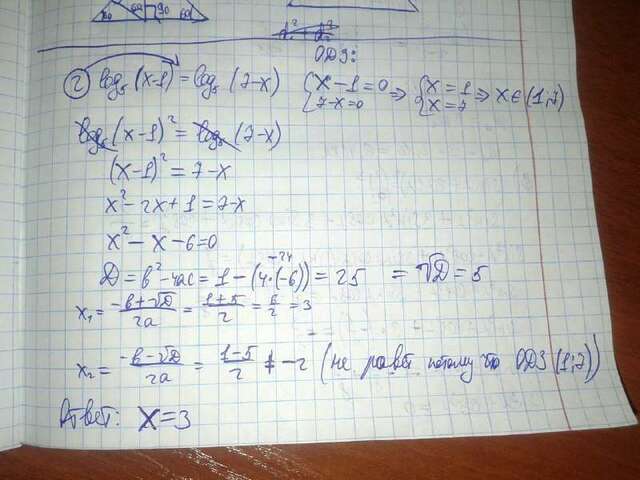 60 60 90 60
ОДЗ:
2 log₅(x-1) = log₅(7-x) { x-1=0 7-x=0 => { x=1 x=7 => x∈(1;7)
log₅(x-1)² = log₅(7-x)
(x-1)² = 7-x
x²-2x+1=7-x
x²-x-6=0
-24
D=b²-4ac=1-(4·(-6))=25 =√D=5
x₁= -b+√D/2a = 1+5/2 = 6/2 =3
x₂= -b-√D/2a = 1-5/2 ≠ -2 (не потому что ОДЗ (1;7))
Ответ: x=3